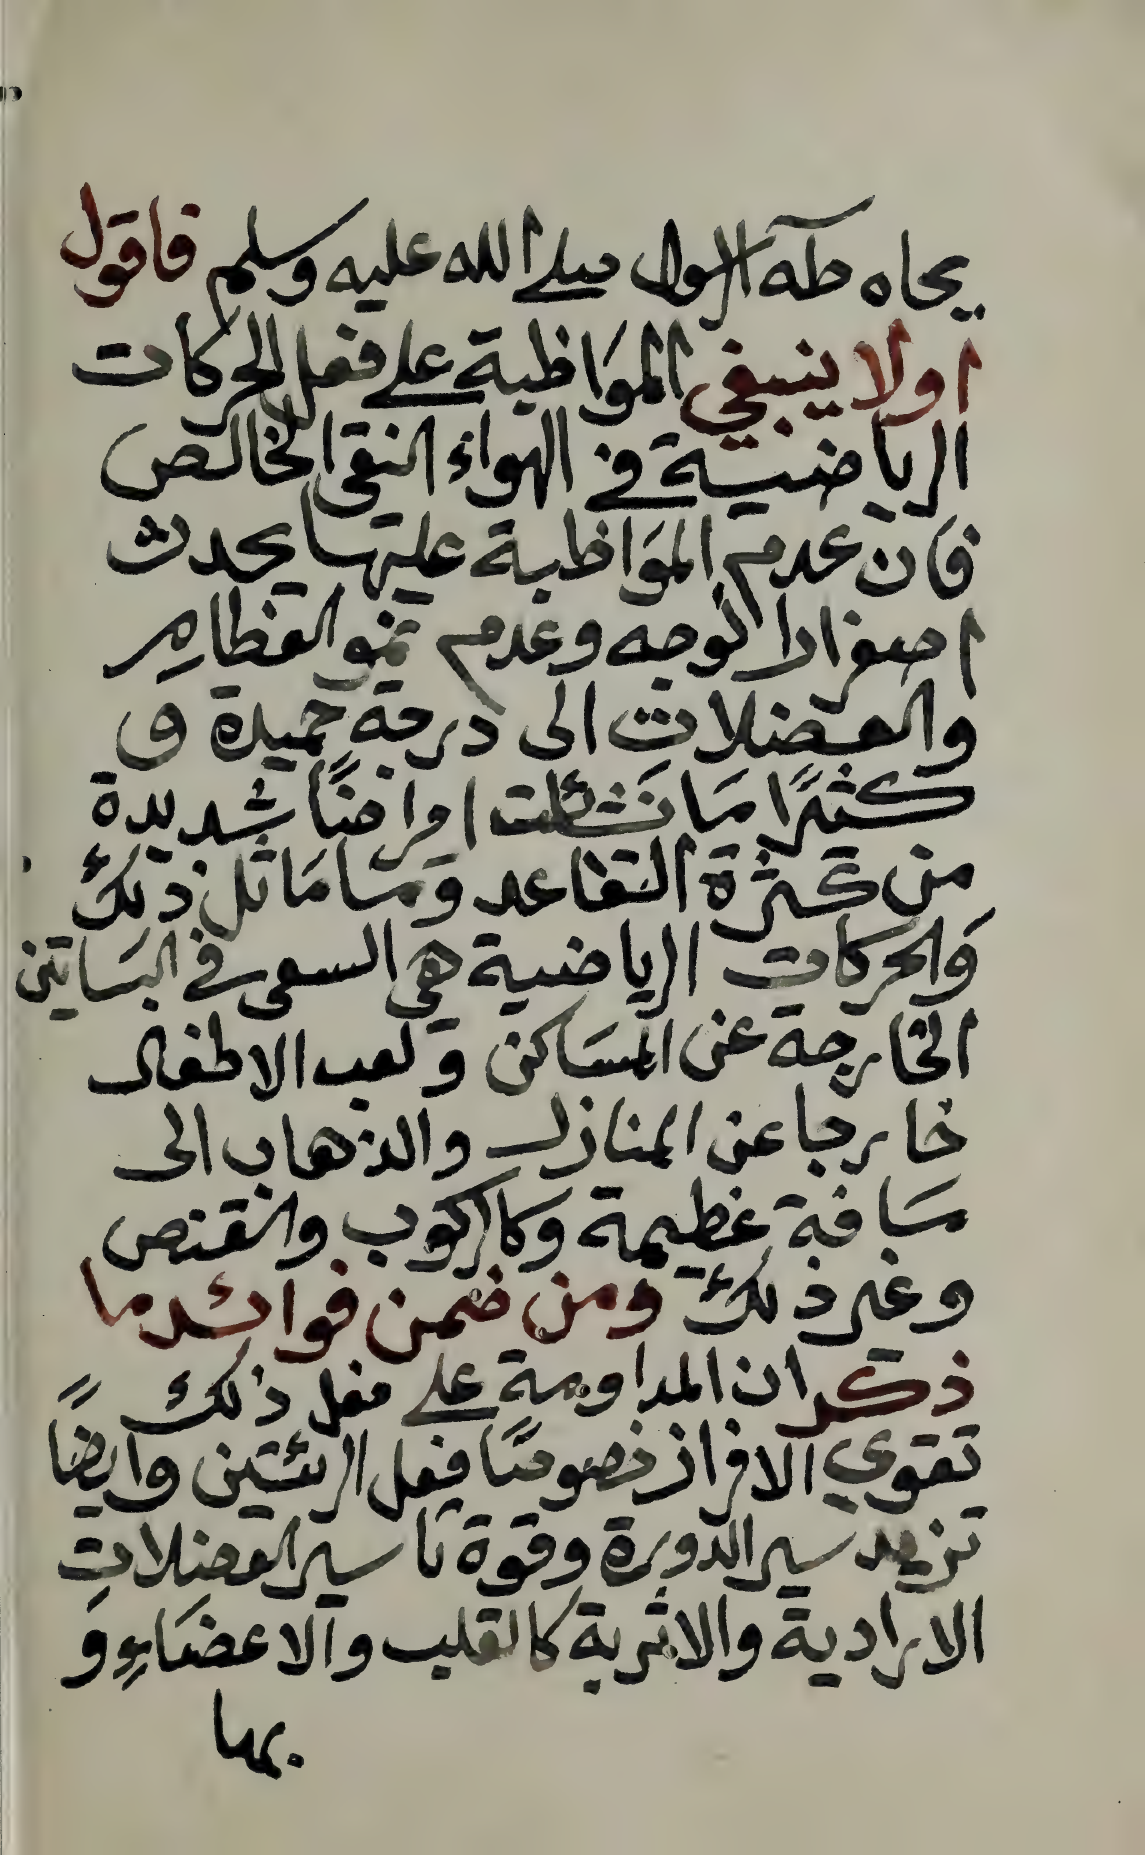 بجاه طه الرسول صلى الله عليه وسلم فاقول
اولا ينبغي المواظبة على فعل الحركات
الرياضية في الهواء النقى الخالص
فان عدم المواظبة عليها يحدث
اصفرارا لوجه وعدم نمو العظام
والعضلات الى درجة حميدة و
كثيرًا ما نشئت امراضًا شديدة
من كثرة التقاعد وما ماثل ذلك
والحركات الرياضية هي السعى في البساتين
الخارجة عن المساكن ولعب الاطفال
خارجا عن المنازل والذهاب الى
سافة عظيمة وكالركوب والقنص
وغير ذلك ومن ضمن فوائد ما
ذكر ان المداومة على فعل ذلك
تقوي الافراز خصوصًا فعل الرئتين وايضًا
تزيد سير الدورة وقوة تأسير العضلات
الارادية والاثرية كالقلب والاعضاء و
بها